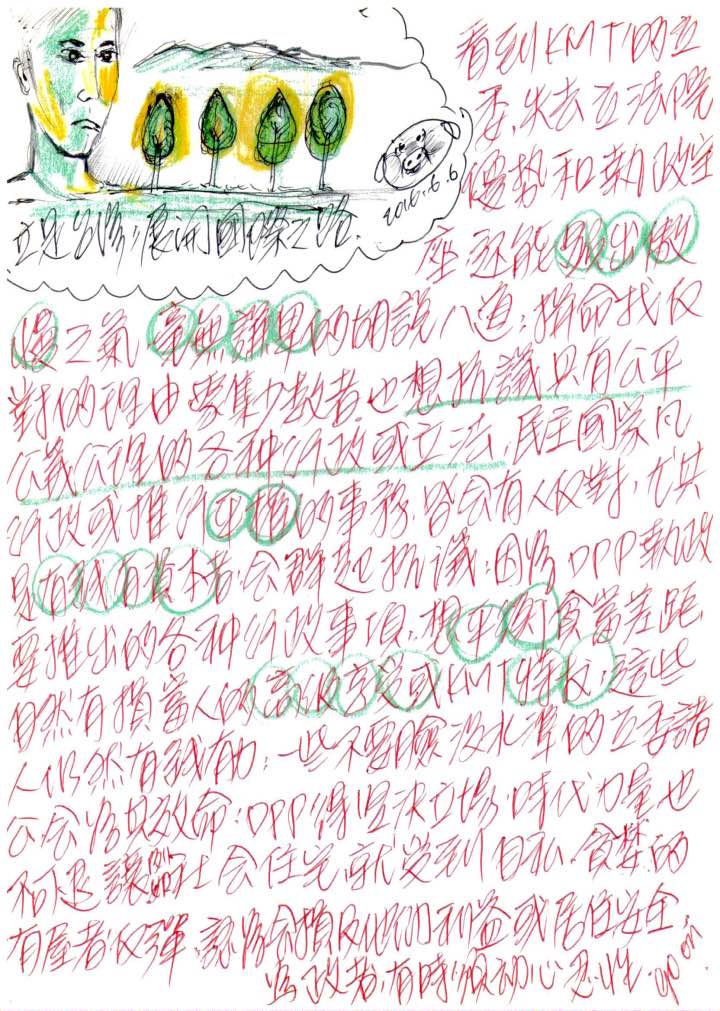 看到KMT的立
委,失去立法院
優勢和執政宝
座還能顯出傲
2016.6.6
立足台灣;展開國際之路.
慢之氣 毫無謙卑的胡說八道;拼命找反
對的理由;雲集少數者也想抗議只有公平
公義公理的各种行政或立法,民主國家凡
行政或推行 的事務,皆会有人反對,尤其
是有錢有資本者,会群起抗議;因為DPP執政
要推出的各种行政事項,想平 貧富差距,
自然有損富人的 享受或KMT特权,這些
人仍然有錢有勢;一些不要臉沒水準的立委諸
公会為其效命;DPP得堅決立場,時代力量也
不可退讓,社会住宅就受到自私、貪婪的
有屋者反彈,認為会損及他們利益或居住安全,
為政者,有時須動心忍性. go on.